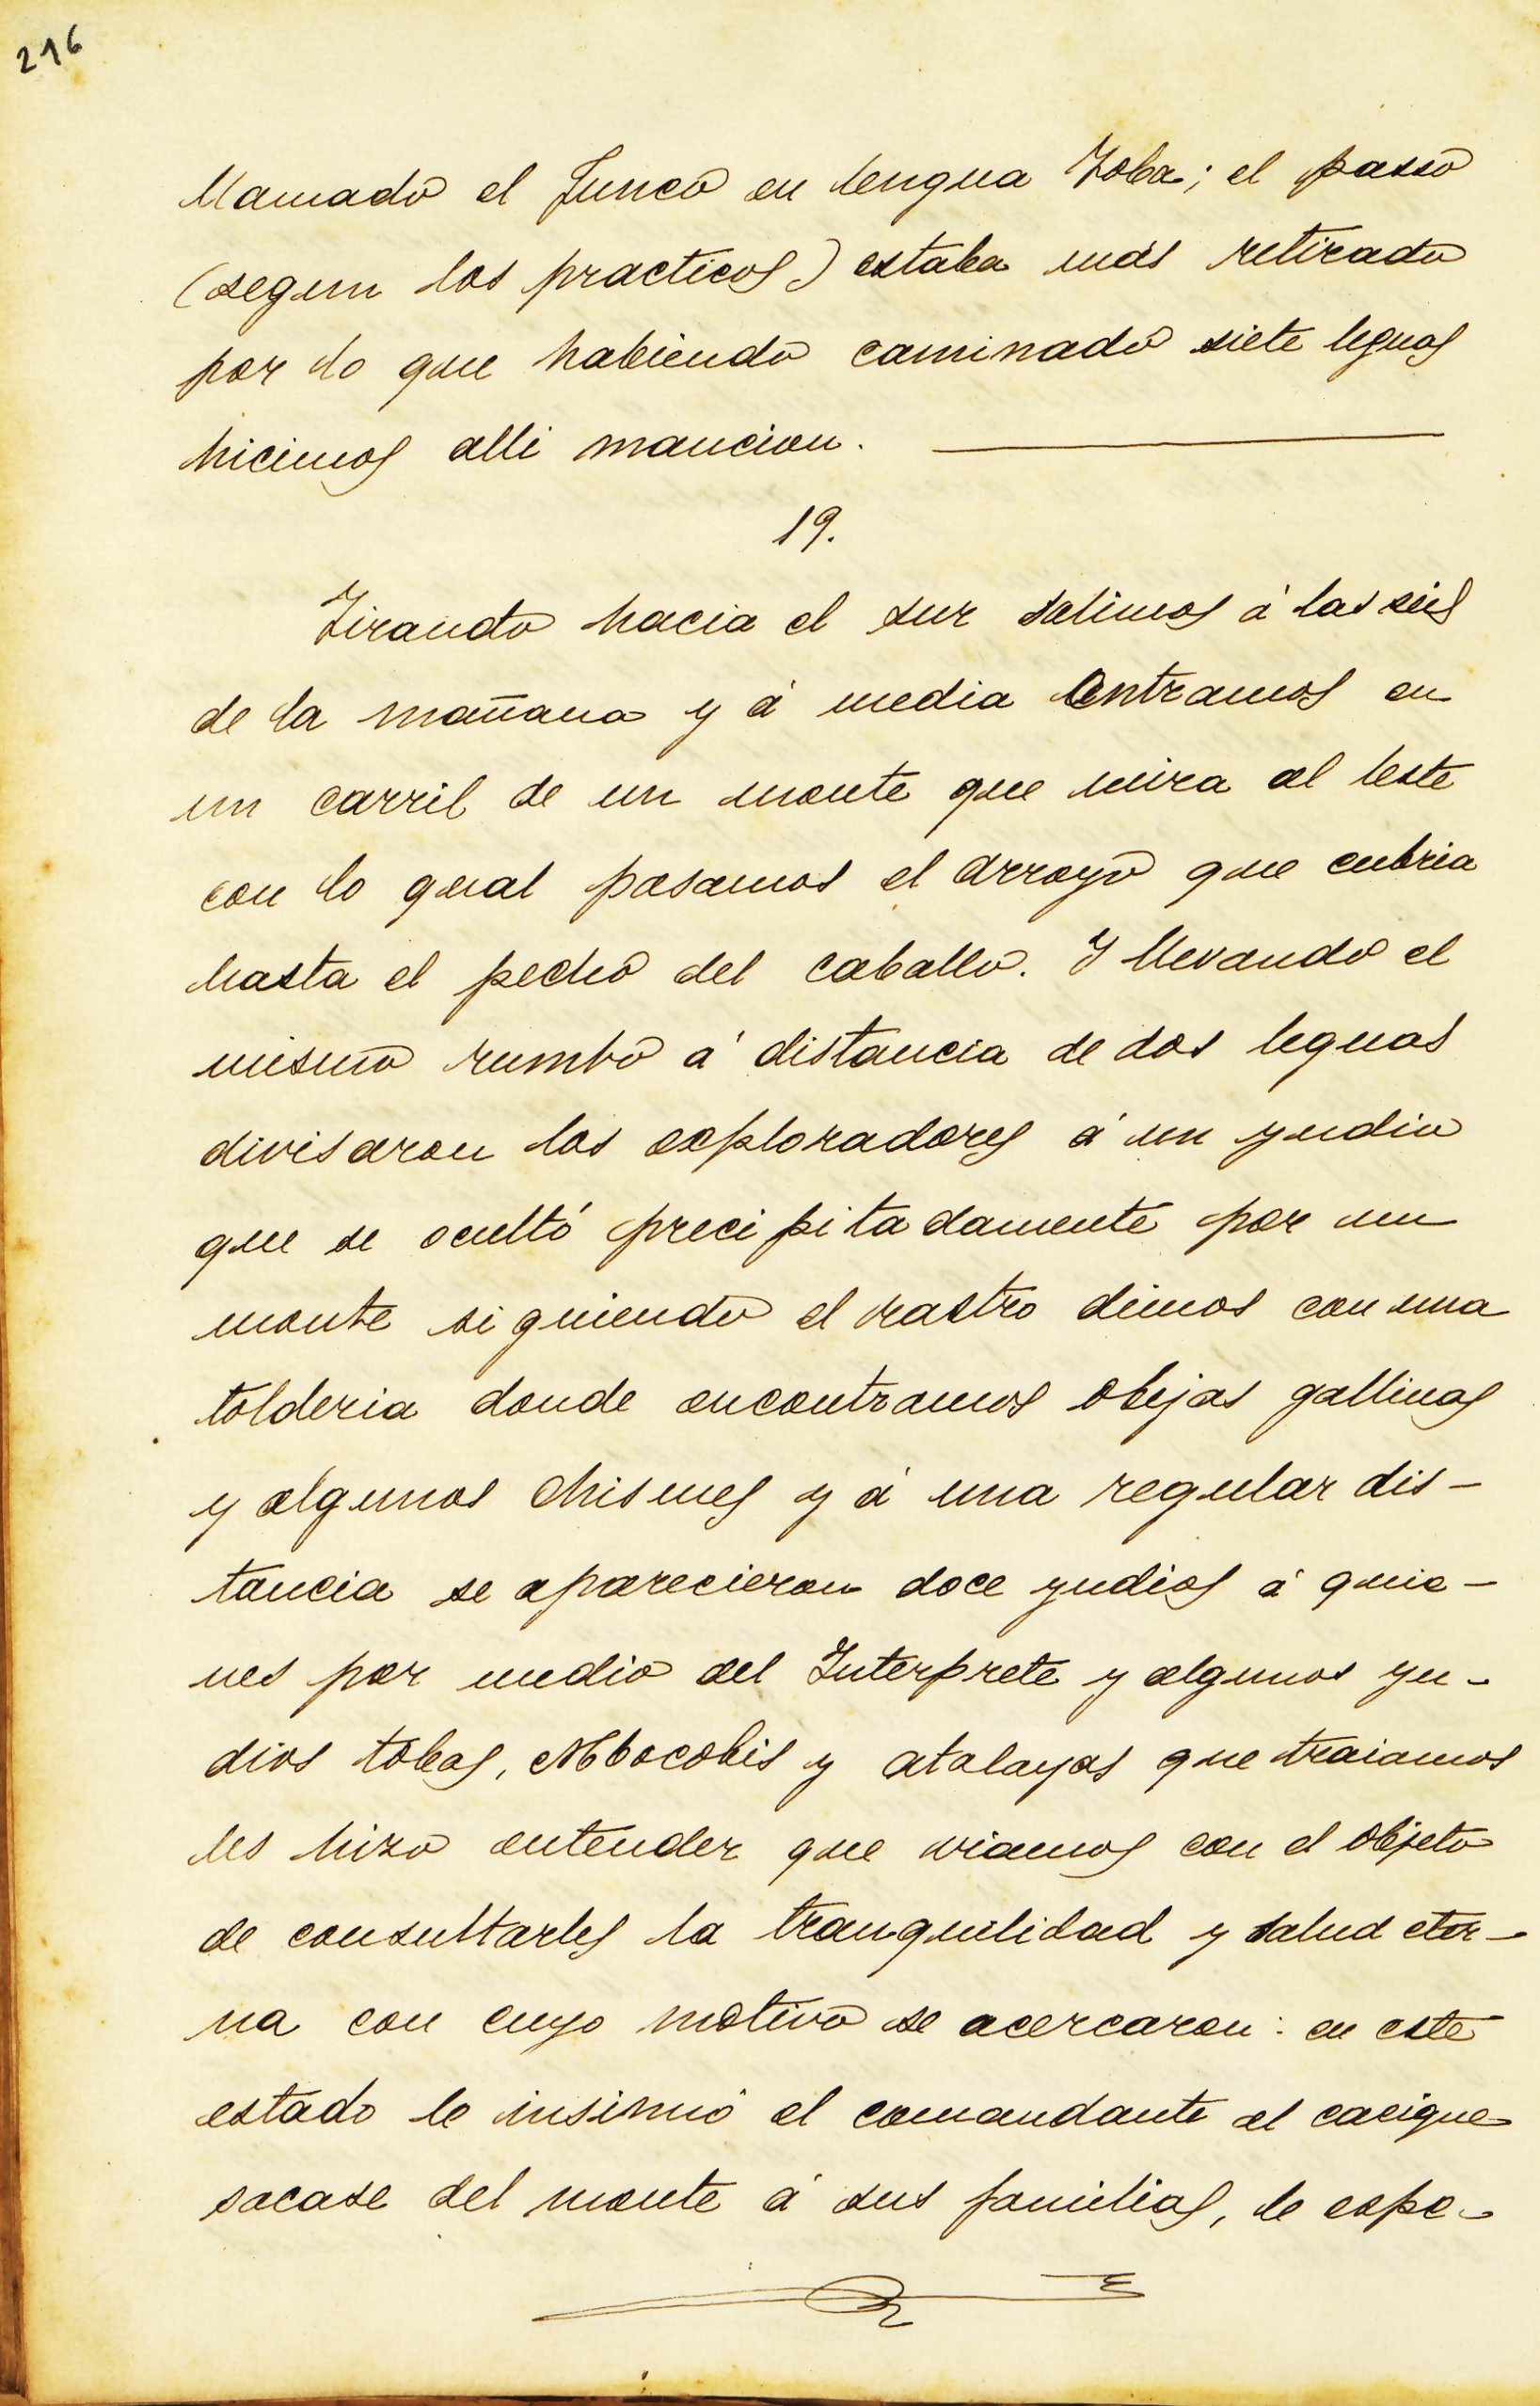 216
llamado el Junco en lengua Toba; el passo
(segun los practicos) estaba más retirado
por lo que habiendo caminado siete leguas
hicimos alli mancion.
19.
Tirando hacia el sur salimos á las seis
de la mañana y á media entramos en
un carril de un monte que mira al leste
con lo qual pasamos el arroyo que cubria
hasta el pecho del caballo. Y llevando el
mismo rumbo á distancia de dos leguas
divisaron los exploradores á un yndio
que se ocultó precipitadamente por un
monte siguiendo el rastro dimos con una
tolderia donde encontramos obejas gallinas
y algunos chismes y á una regular dis-
tancia se aparecieron doce yndios á quie-
nes por medio del Interprete y algunos yn-
dios tobas, Mbocobis y atalayas que traiamos
les hizo entender que viamos con el objeto
de consultarles la tranquilidad y salud eter-
na con cuyo motivo se acercaron: en este
estado le insinuó el comandante al cacique
sacase del monte á sus familias, le espe-